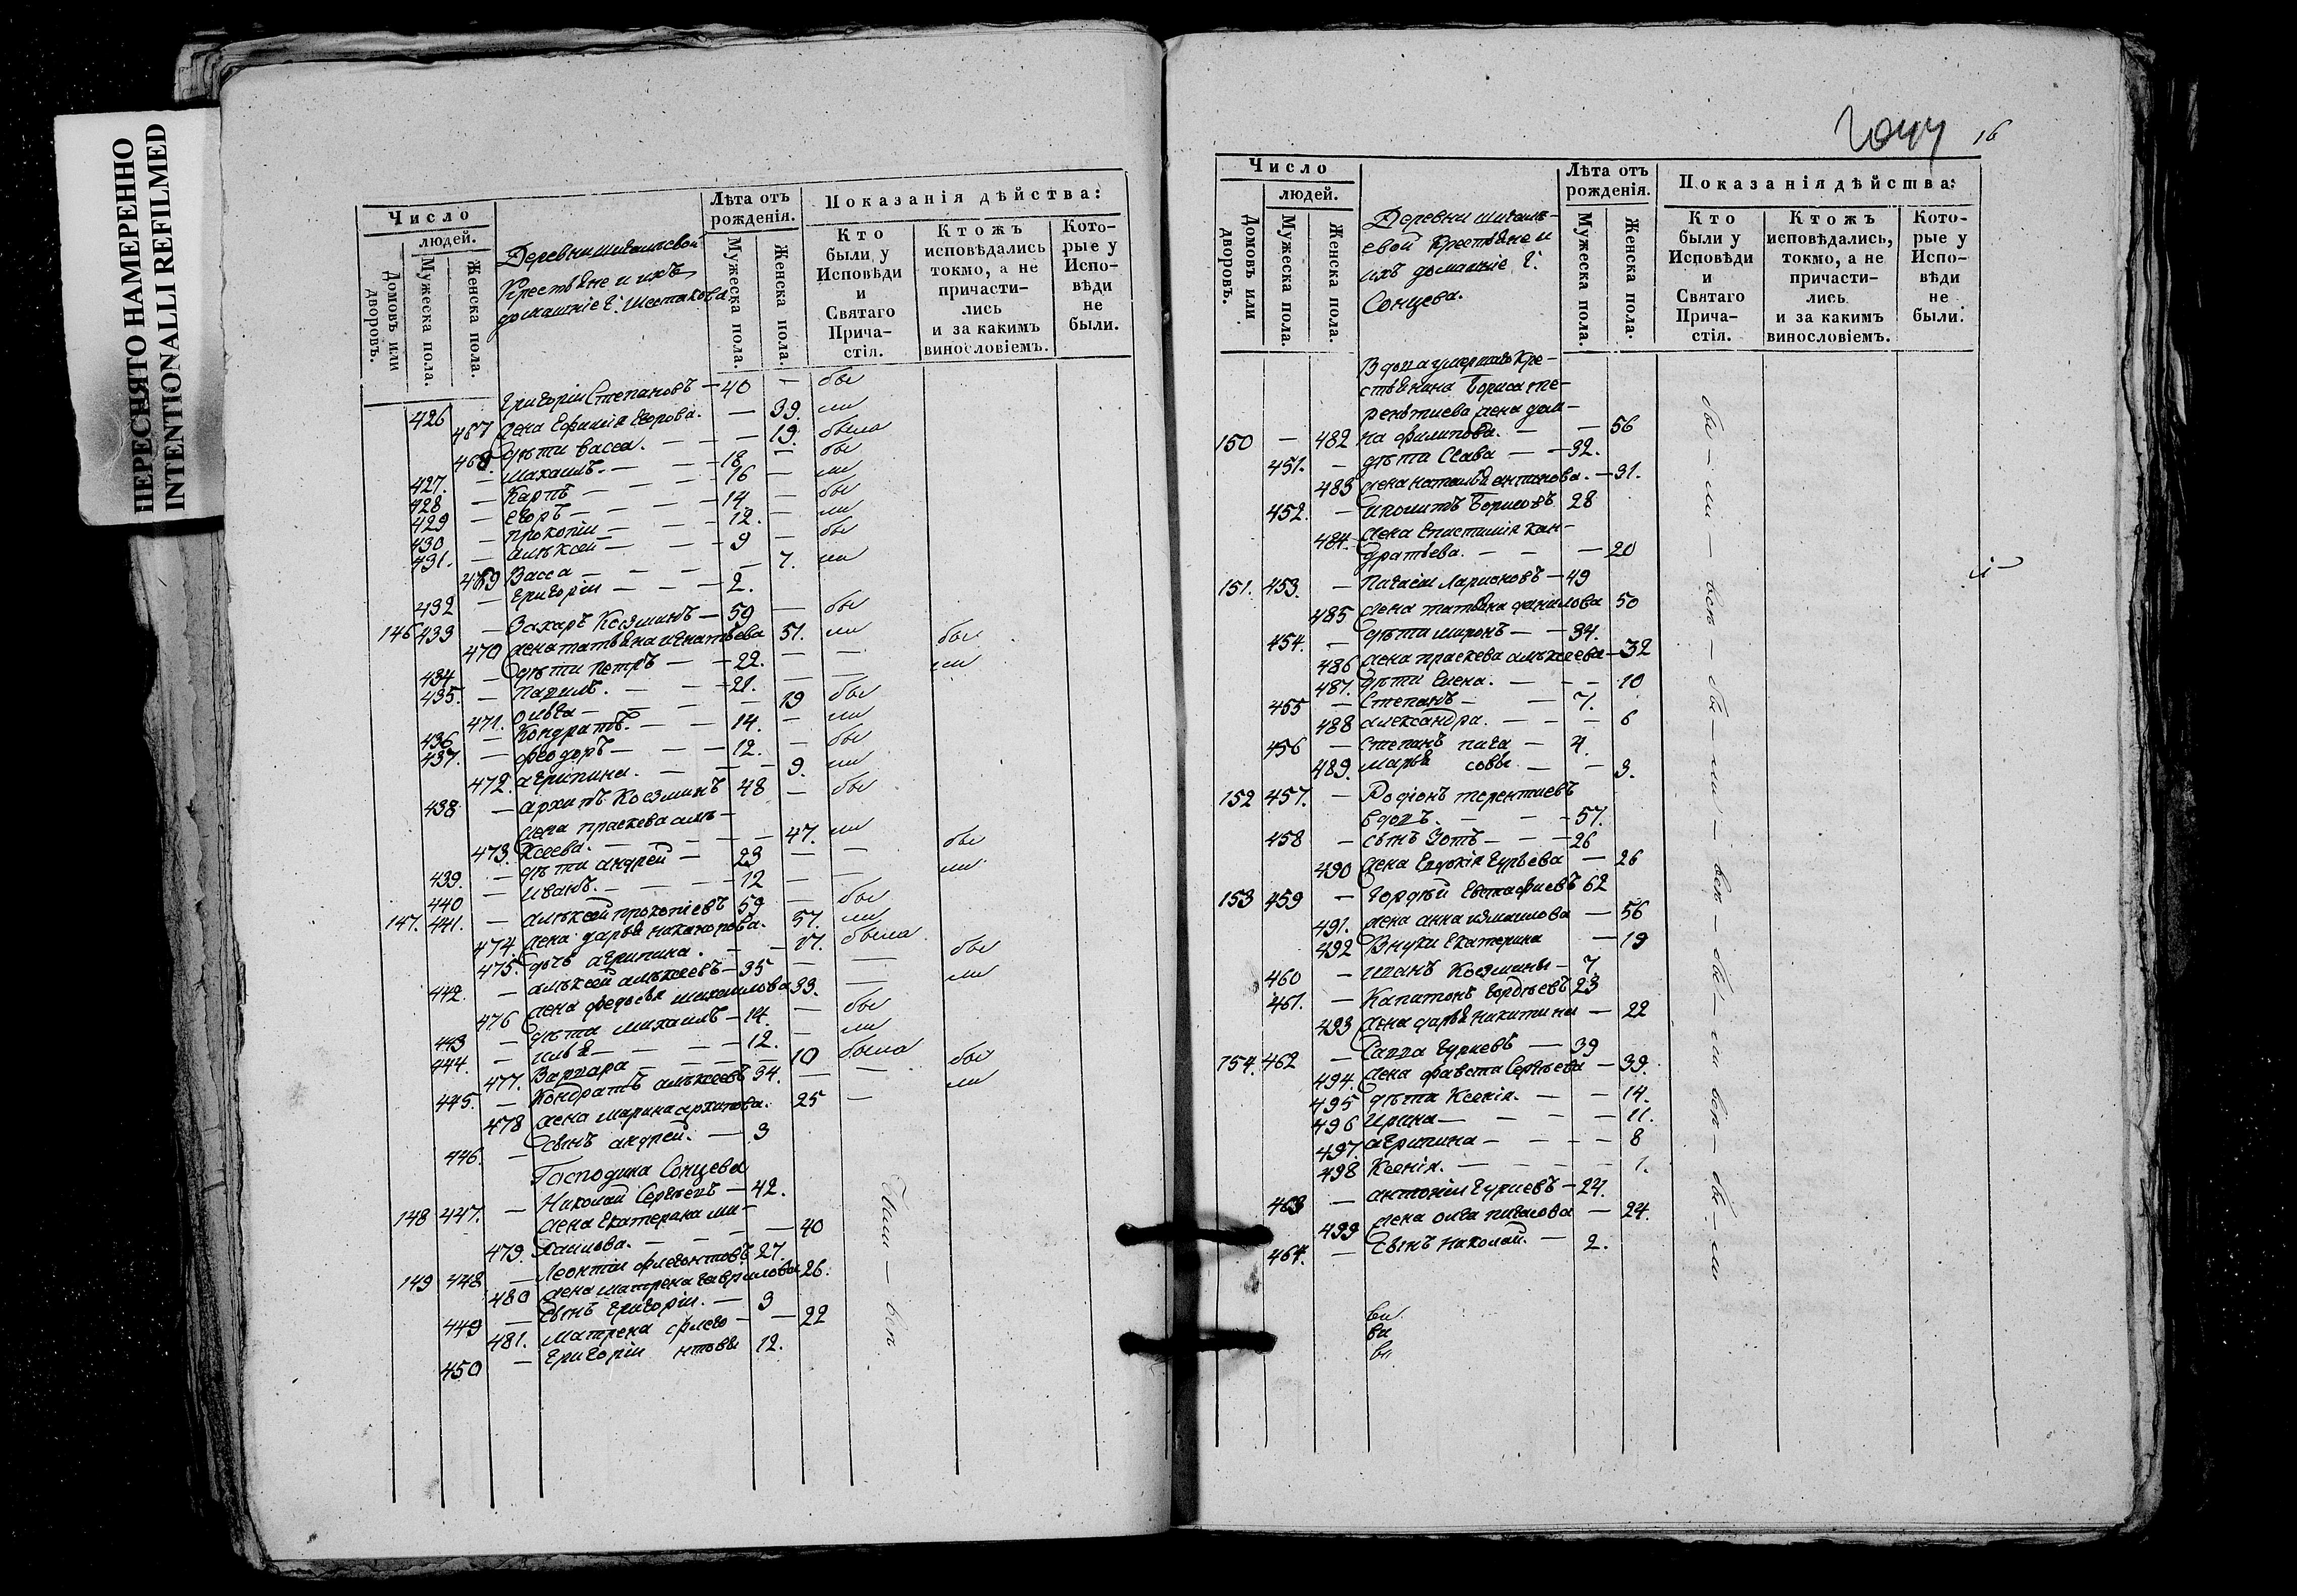 НЕРЕСНЯТО НАМЕРЕННО
INTENTIONALLI REFILMED
Число
людей.
Домовъ или дворовъ.
Мужеска пола.
Женска пола.
Деревни
Крестьяне и ихъ
домашніе Г. Шестакова
Лѣта отъ рожденія.
Мужеска пола.
Женска пола.
Показанія дѣйства:
Кто были у Исповѣди и Святаго Прича-стія.
Ктожъ исповѣдались токмо, а не причасти-лись и за какимъ винословіемъ.
Кото-рые у Испо-вѣди не были.
426 Григорій Степановъ — 40 — бы
467 жена Ефимія Егорова. — 39. ли
468 дѣти Васса. — — — 19. была
427. — Михаилъ. — — 18 — бы
428 — Карпъ — — 16 — ли
429 — Егоръ — — — 14 — бы
430 — Прокопій — — 12. — ли
431. — Алѣксѣй — — — 9 — бы
469 Васса — — — — 7. ли
432 — Григорій — — — 2.
146 433 — Захаръ Козминъ — 59 — бы
470 жена Татьяна Игнатьева 51. ли
434 — дѣти Петръ — — 22. — — бы
435. — Павилъ. — — 21. — — ли
471. Ольга — — — — 19 бы
436 — Кондратъ. — — 14. — ли
437. — Феодоръ — — — 12. — бы
472. Агрипина. — — — 9. ли
438 — Архипъ Козминъ 48 — бы
жена Праскева Алѣ-
473. ксеева. — — — — 47. ли
439. — дѣти Андрей — 23 — — бы
440 — Иванъ. — — — 12 — — ли
147. 441. — Алѣксѣй Прокопіевъ 59 — бы
474 жена Дарья Никанорова. 57. ли
475. дочь Агрипина. — — 21. была
442. — Алѣксѣй Алѣксеевъ — 35 — — бы
476 жена Федосья Михаилова 33. — ли
443 — дѣти Михаилъ — 14. — бы
444. — Илья — — — — 12. — ли
477. Варвара — — — — 10 была
445. — Кондратъ Алѣксеевъ 34. — — бы
478 жена Марина Архипова. 25 — ли
446. — сынъ Андрей. — 3
Господина Сонцева
148 447. — Николай Сергѣевъ — 42.
жена Екатерина Ми-
479. хаилова. — — — — 40
149 448 — Леонтій Флегонтовъ 27.
480 жена Матрена Гаврилова 26.
449 — сынъ Григорій. — 3
481. Матрена Флего- — 22
450 — Григорій нтовы 12.
16
Число
людей.
Домовъ или дворовъ.
Мужеска пола.
Женска пола.
Деревни
евой Крестьяне и
ихъ домашніе Г.
Сонцева.
Лѣта отъ рожденія.
Мужеска пола.
Женска пола.
Показанія дѣйства:
Кто были у Исповѣди и Святаго Прича-стія.
Ктожъ исповѣдались, токмо, а не причасти-лись и за какимъ винословіемъ.
Кото-рые у Испо-вѣди не были.
Вдова умершаго Кре-
стьянина Бориса Те-
рентиева жена Дом-
150 — 482 на Филипова. — — 56
451. — дѣти Савва — — 32.
483 жена Наталья Антипова. — 31.
452. — Иполитъ Борисовъ 28
484. жена Епистимія Кан-
дратьева. — — — 20
151. 453. — Пигасій Ларионовъ — 49
485 жена Татьяна Данилова 50
454. — дѣти Миронъ — — 34.
486 жена Праскева Алѣксеева — 32
487. дѣти Елена. — — — 10
455 — Степанъ — — 7.
488 Александра. — — — 6
456 — Степанъ Пига — 4.
489. Марья совы — — 3.
152 457. — Родіонъ Терентиевъ
вдовъ. — — — 57.
458 — сынъ Зотъ — — — 26
490 жена Евдокія Гурьева — 26
153 459 — Гордѣй Евстафиевъ 62
491. жена Анна Измаилова — 56
492 Внуки Екатерина — 19
460 — Иванъ Козмины — 7
461. — Капитонъ Гордѣевъ 23
493 жена Дарья Никитина — 22
154. 462 — Савва Гуриевъ — 39
494. жена Фавста Сергѣева — 39.
495 дѣти Ксенія. — — 14.
496 Ирина — — — — 11.
497. Агрипина — — — — 8
498 Ксенія. — — — — 1.
463 — Антоній Гуриевъ — 24.
499 жена Олга Пигасова — 24.
464. — сынъ Николай. — 2.